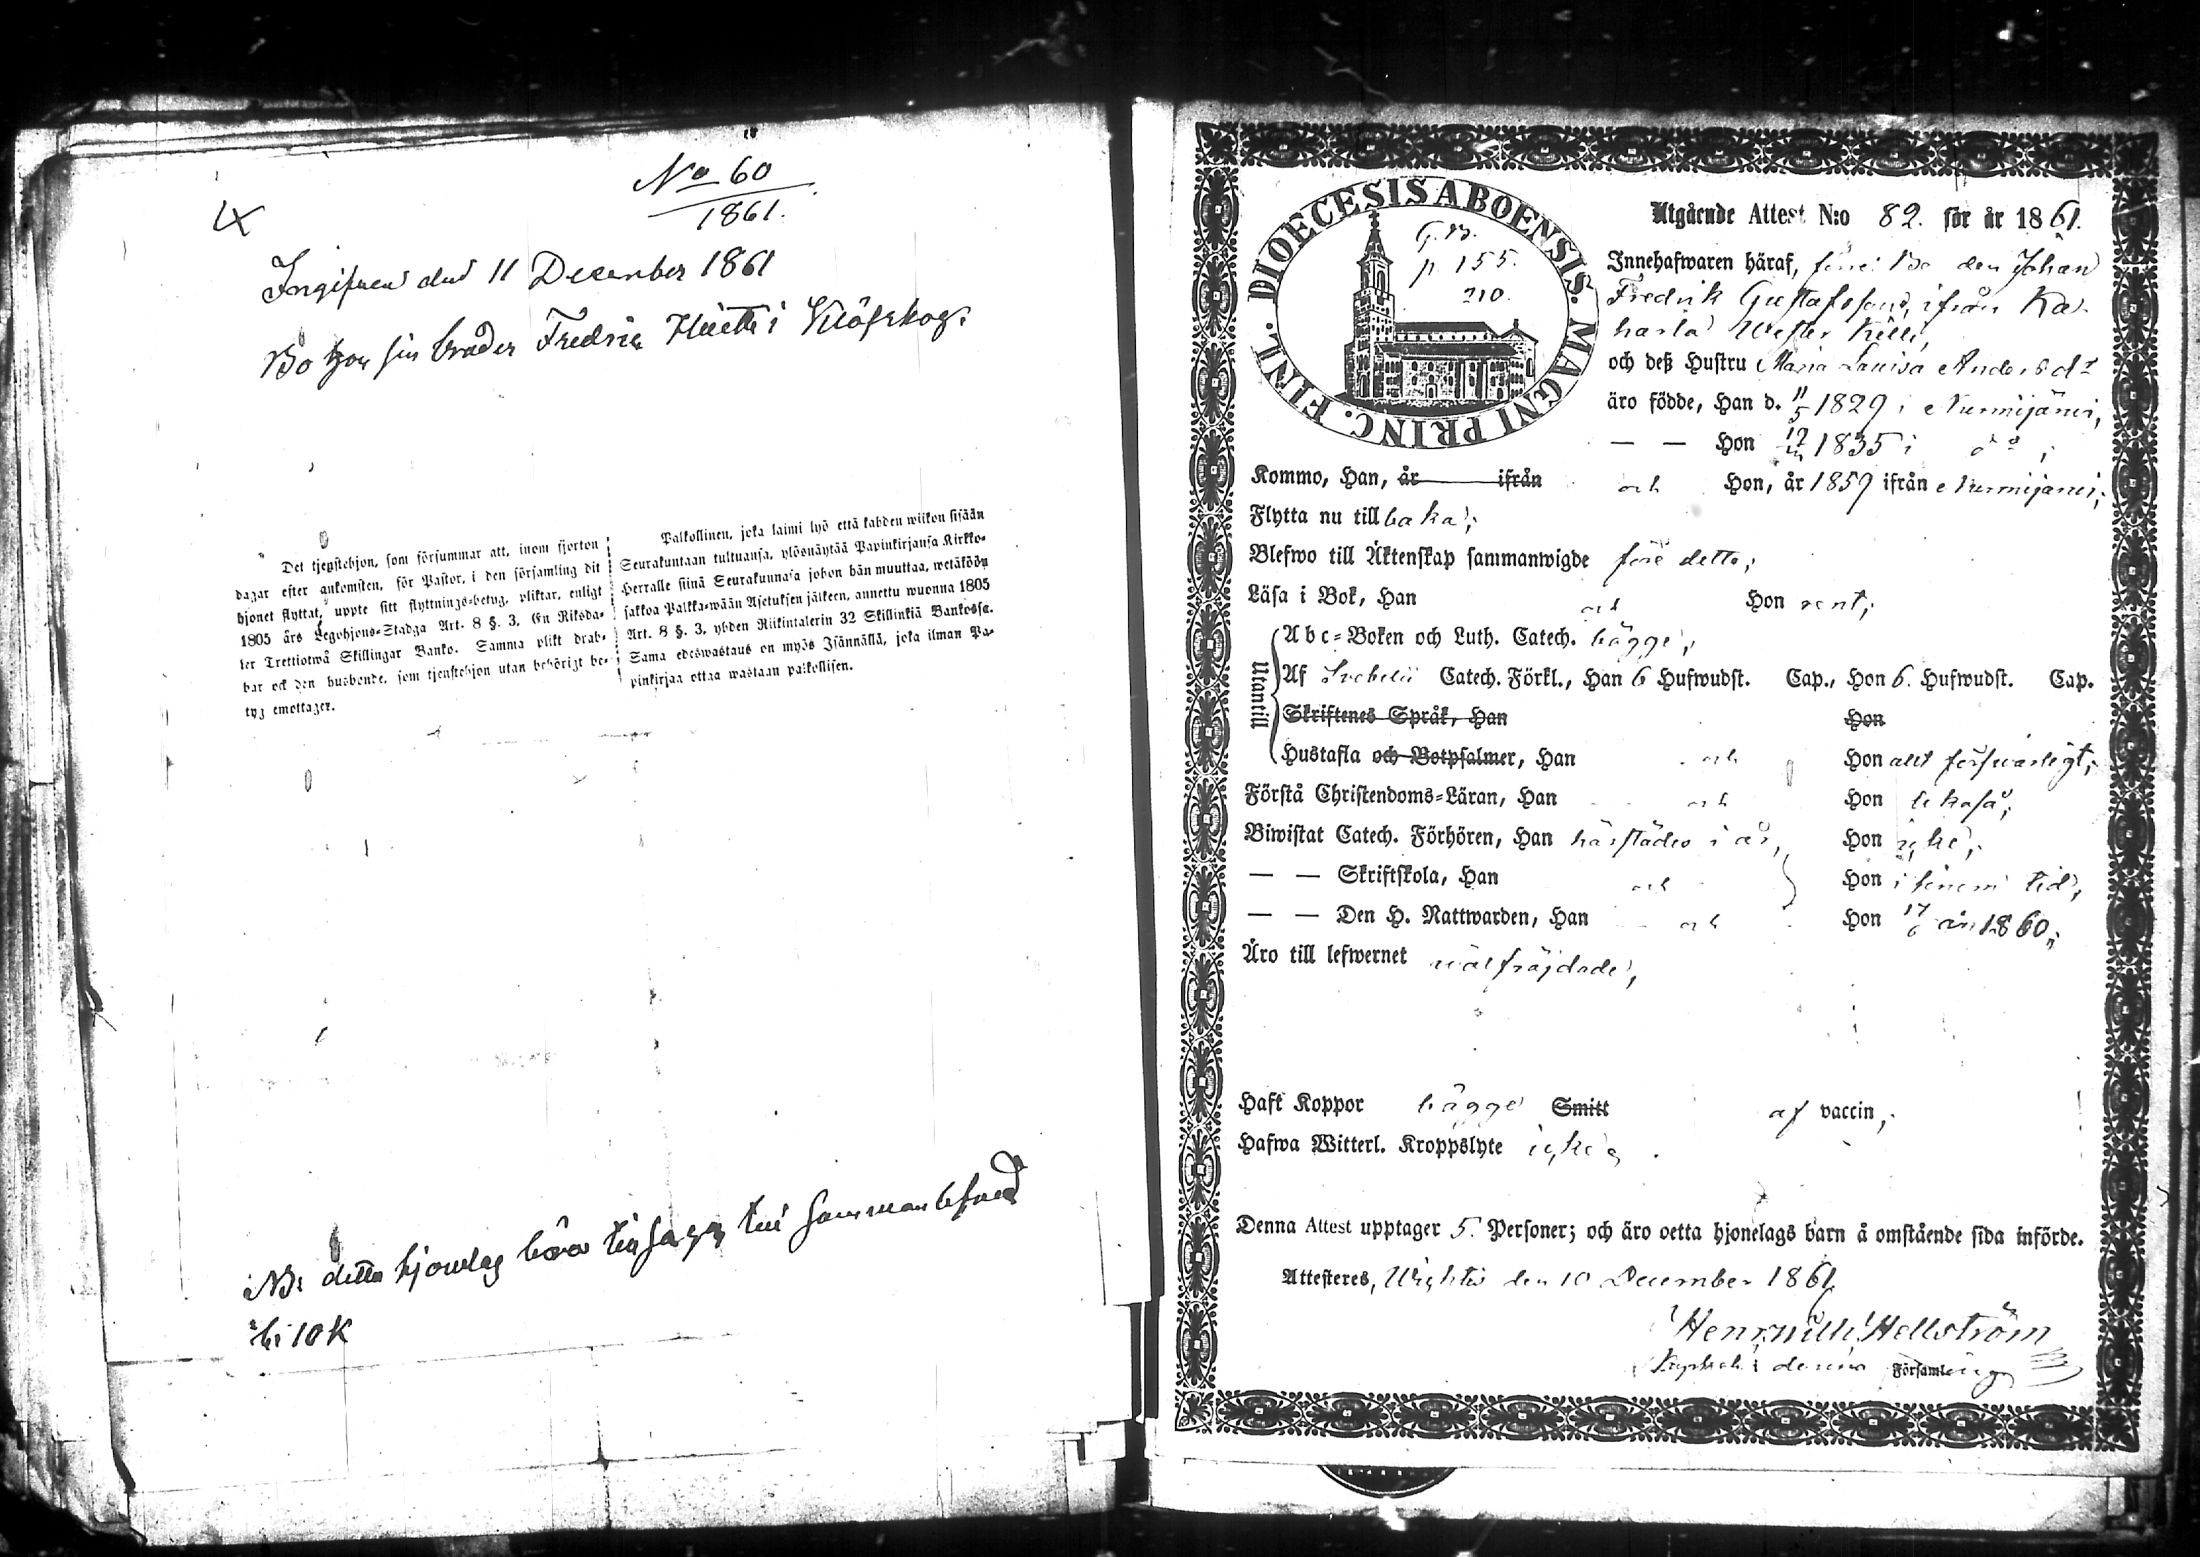 No 60
1861.
Ingifven den 11 December 1861
Bo hos sin broder Fredric i Klöfskog.
Det tjenstehjon, som försummar att, inom fjorton
dagar efter ankomsten, för Pastor, i den församling dit
hjonet flyttat, uppte sitt flyttnings-betyg, pliktar, enligt
1805 års Legohjons-Stadga Art. 8 §. 3. En Riksda-
ler Trettiotwå Skillingar Banko. Samma plikt drab-
bar ock den husbonde, som tjenstehjon utan behörigt be-
tyg emottager.
Palkollinen, joka laimi lyö että kahden wiikon sisään
Seurakuntaan tultuansa, ylösnäytää Papinkirjansa Kirkko-
Herralle siinä Seurakunnasa johon hän muuttaa, wetäköön
sakkoa Palkka-wään Asetuksen jälkeen, annettu wuonna 1805
Art. 8 §. 3, yhden Riikintalerin 32 Skillinkiä Bankossa.
Sama edeswastaus on myös Isännällä, joka ilman Pa-
pinkirjaa ottaa wastaan palkollisen.
NB: detta hjonelag böra till sammanlefnad
DIOECESIS ABOENSIS. MAGNI PRINC. FINL.
p. 155.
210.
Utgående Attest N:o 82. för år 1861.
Innehafwaren häraf, Johan
Fredrik Gustafsson, ifrån
och deß Hustru Maria Lovisa Andersdr
äro födde, Han d. 11/5 1829 i Nurmijärvi,
— — Hon 1835 i do;
Kommo, Han, år ifrån och Hon, år 1859 ifrån Nurmijärvi;
Flytta nu tillbaka;
Blefwo till Äktenskap sammanwigde före detta;
Läsa i Bok, Han och Hon rent;
Utantill
Abc-Boken och Luth. Catech. bägge;
Af Svebelii Catech. Förkl., Han 6 Hufwudst. Cap., Hon 6. Hufwudst. Cap.
Skriftenes Språk, Han Hon
Hustafla och Botpsalmer, Han och Hon allt försvarligt;
Förstå Christendoms-Läran, Han och Hon likaså;
Biwistat Catech. Förhören, Han härstädes i år, Hon icke;
— — Skriftskola, Han och Hon i sinom tid,
— — Den H. Nattwarden, Han och Hon 17/6 1860;
Äro till lefwernet välfräjdade,
Haft Koppor bägge Smitt af vaccin,
Hafwa Witterl. Kroppslyte icke
Denna Attest upptager 5. Personer; och äro detta hjonelags barn å omstående sida införde.
Attesteres, Wichtis den 10 December 1861.
Hellström
i denna Församling